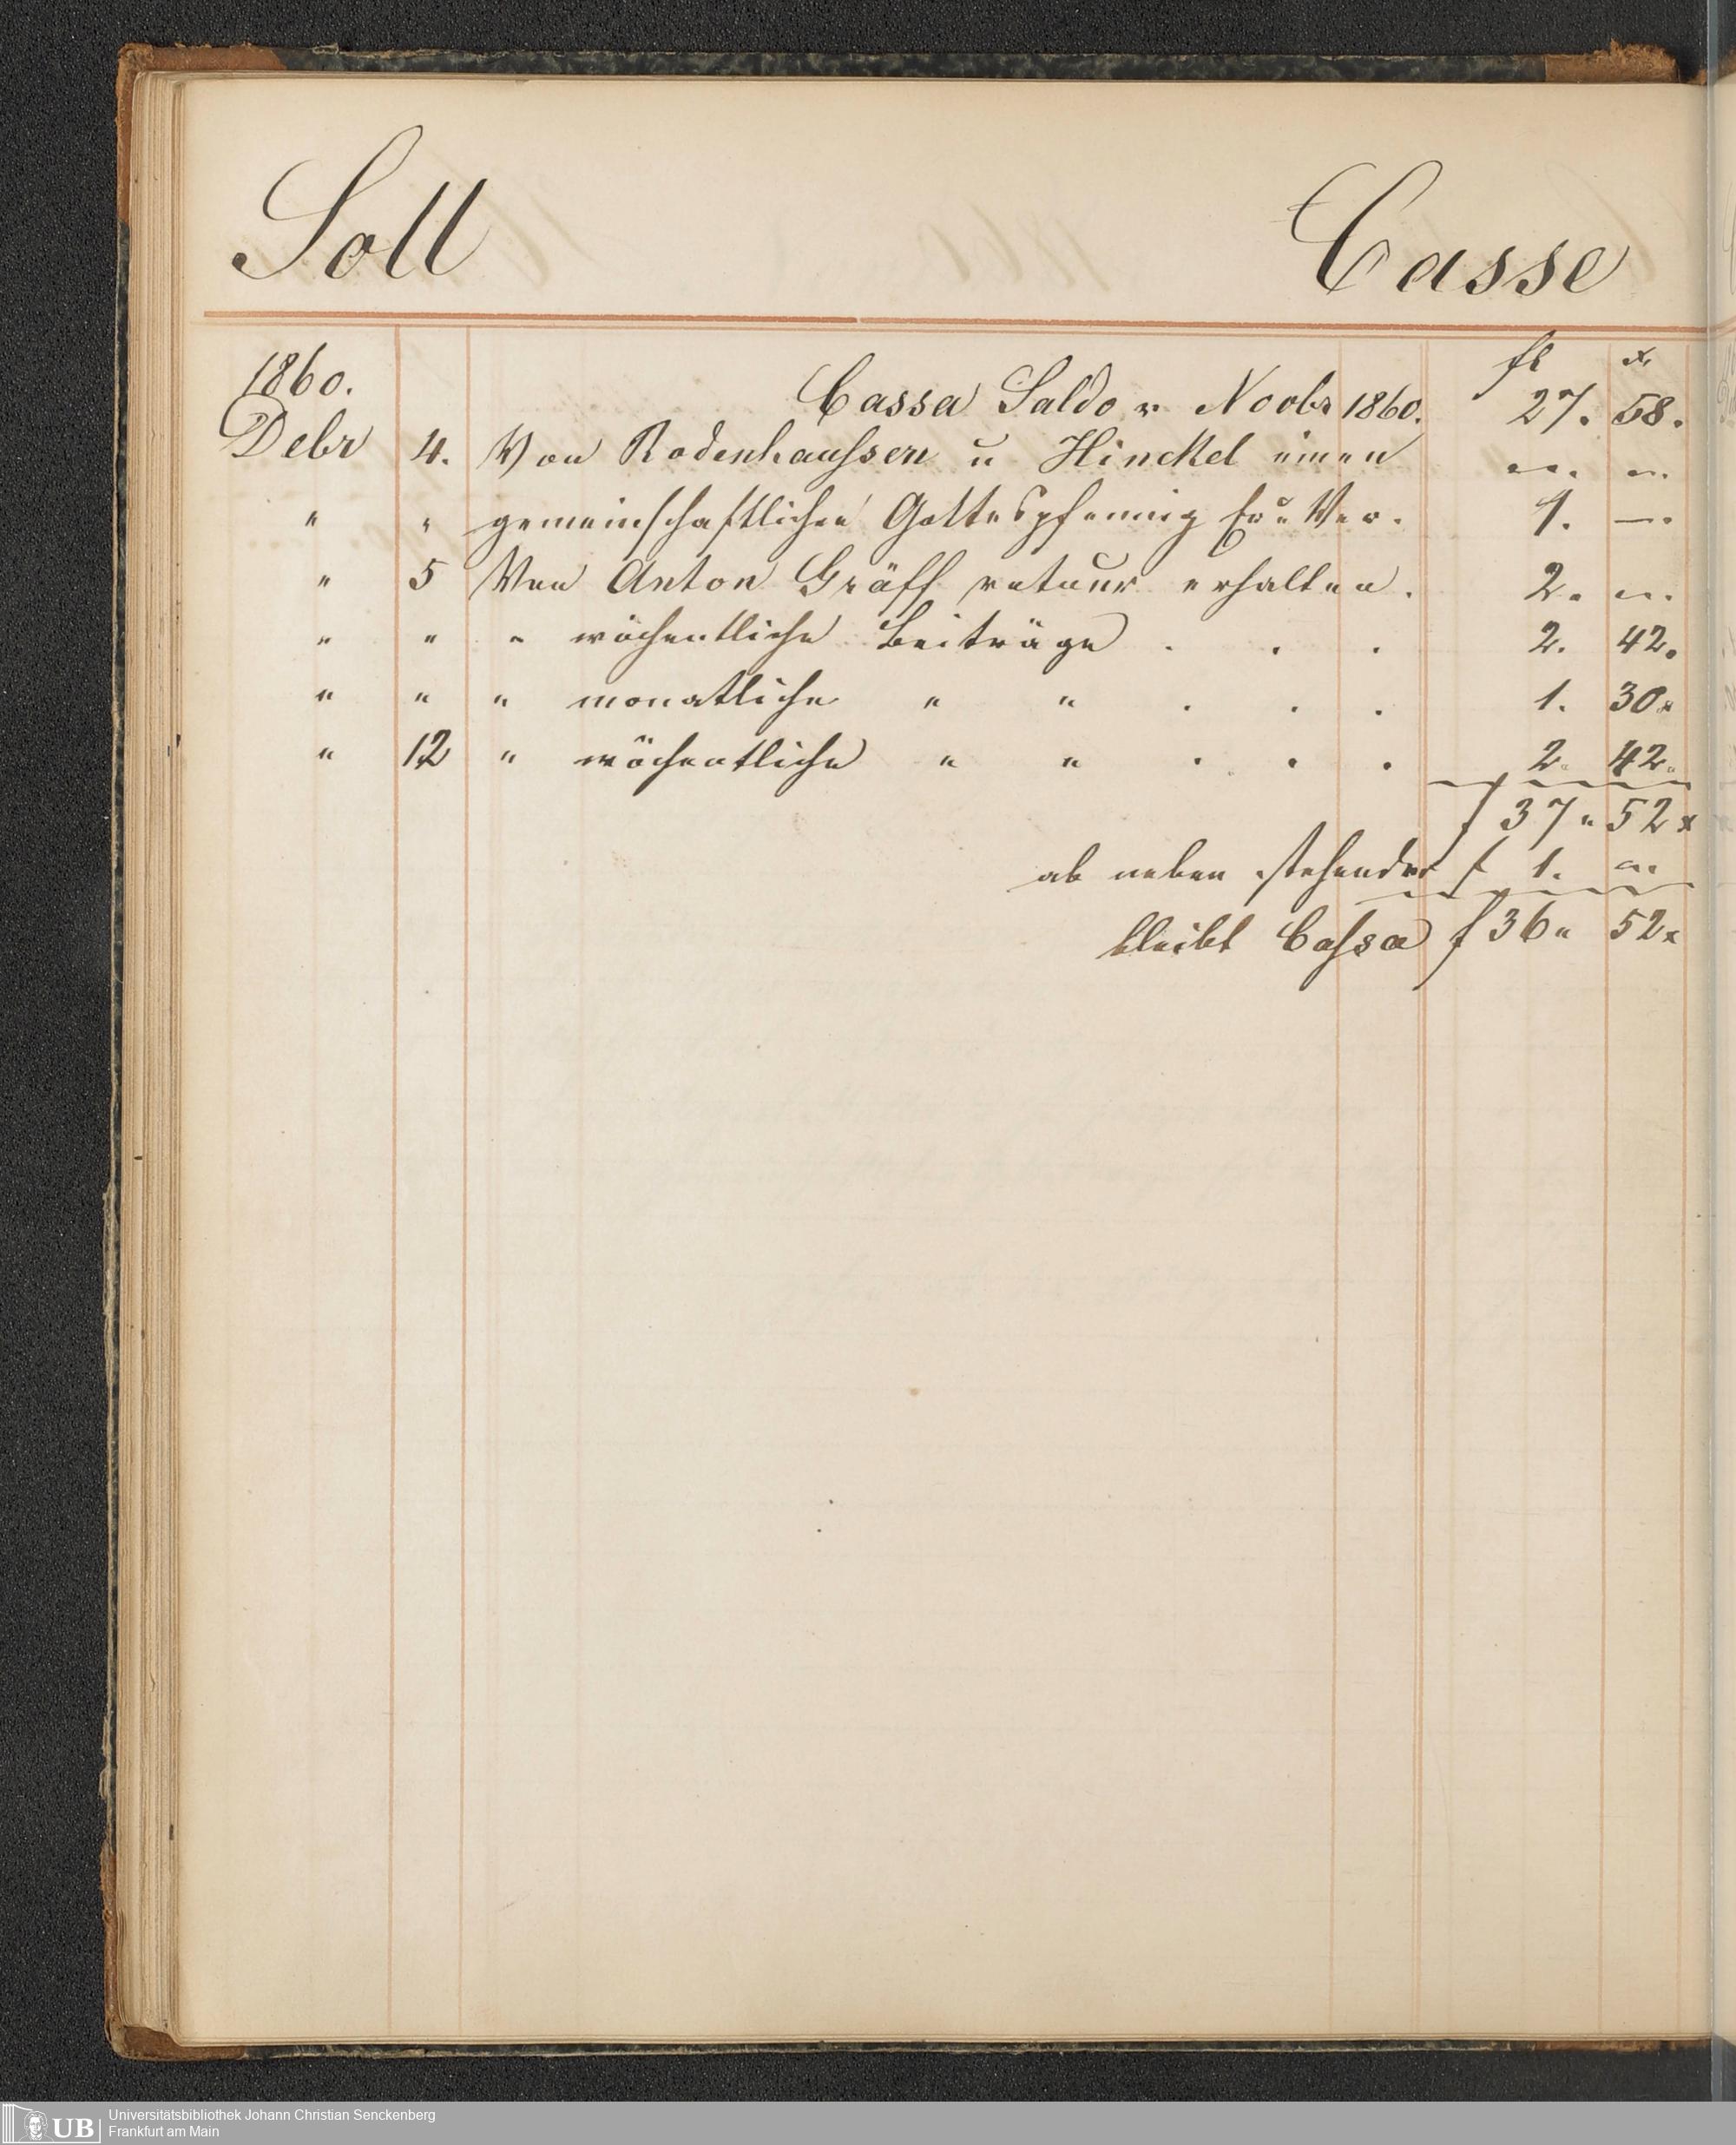 Soll Casse
1860. fl x.
Cassa Saldo v. Novbr 1860. 27. 58.
Debr 4. Von Rodenhaussen u Hinckel einen — —
" " gemeinschaftlichen Gottespfennig 1. —
" 5 Von Anton Gräff retour erhalten. 2. —
" " " wöchentliche Beiträge . . . 2. 42.
" " " monatliche " " . . . 1. 30.
" 12 " wöchentliche " " . . . 2. 42.
f 37 " 52 x
ab neben stehender f 1. —
bleibt Cassa f 36 " 52 x
UB Universitätsbibliothek Johann Christian Senckenberg
Frankfurt am Main